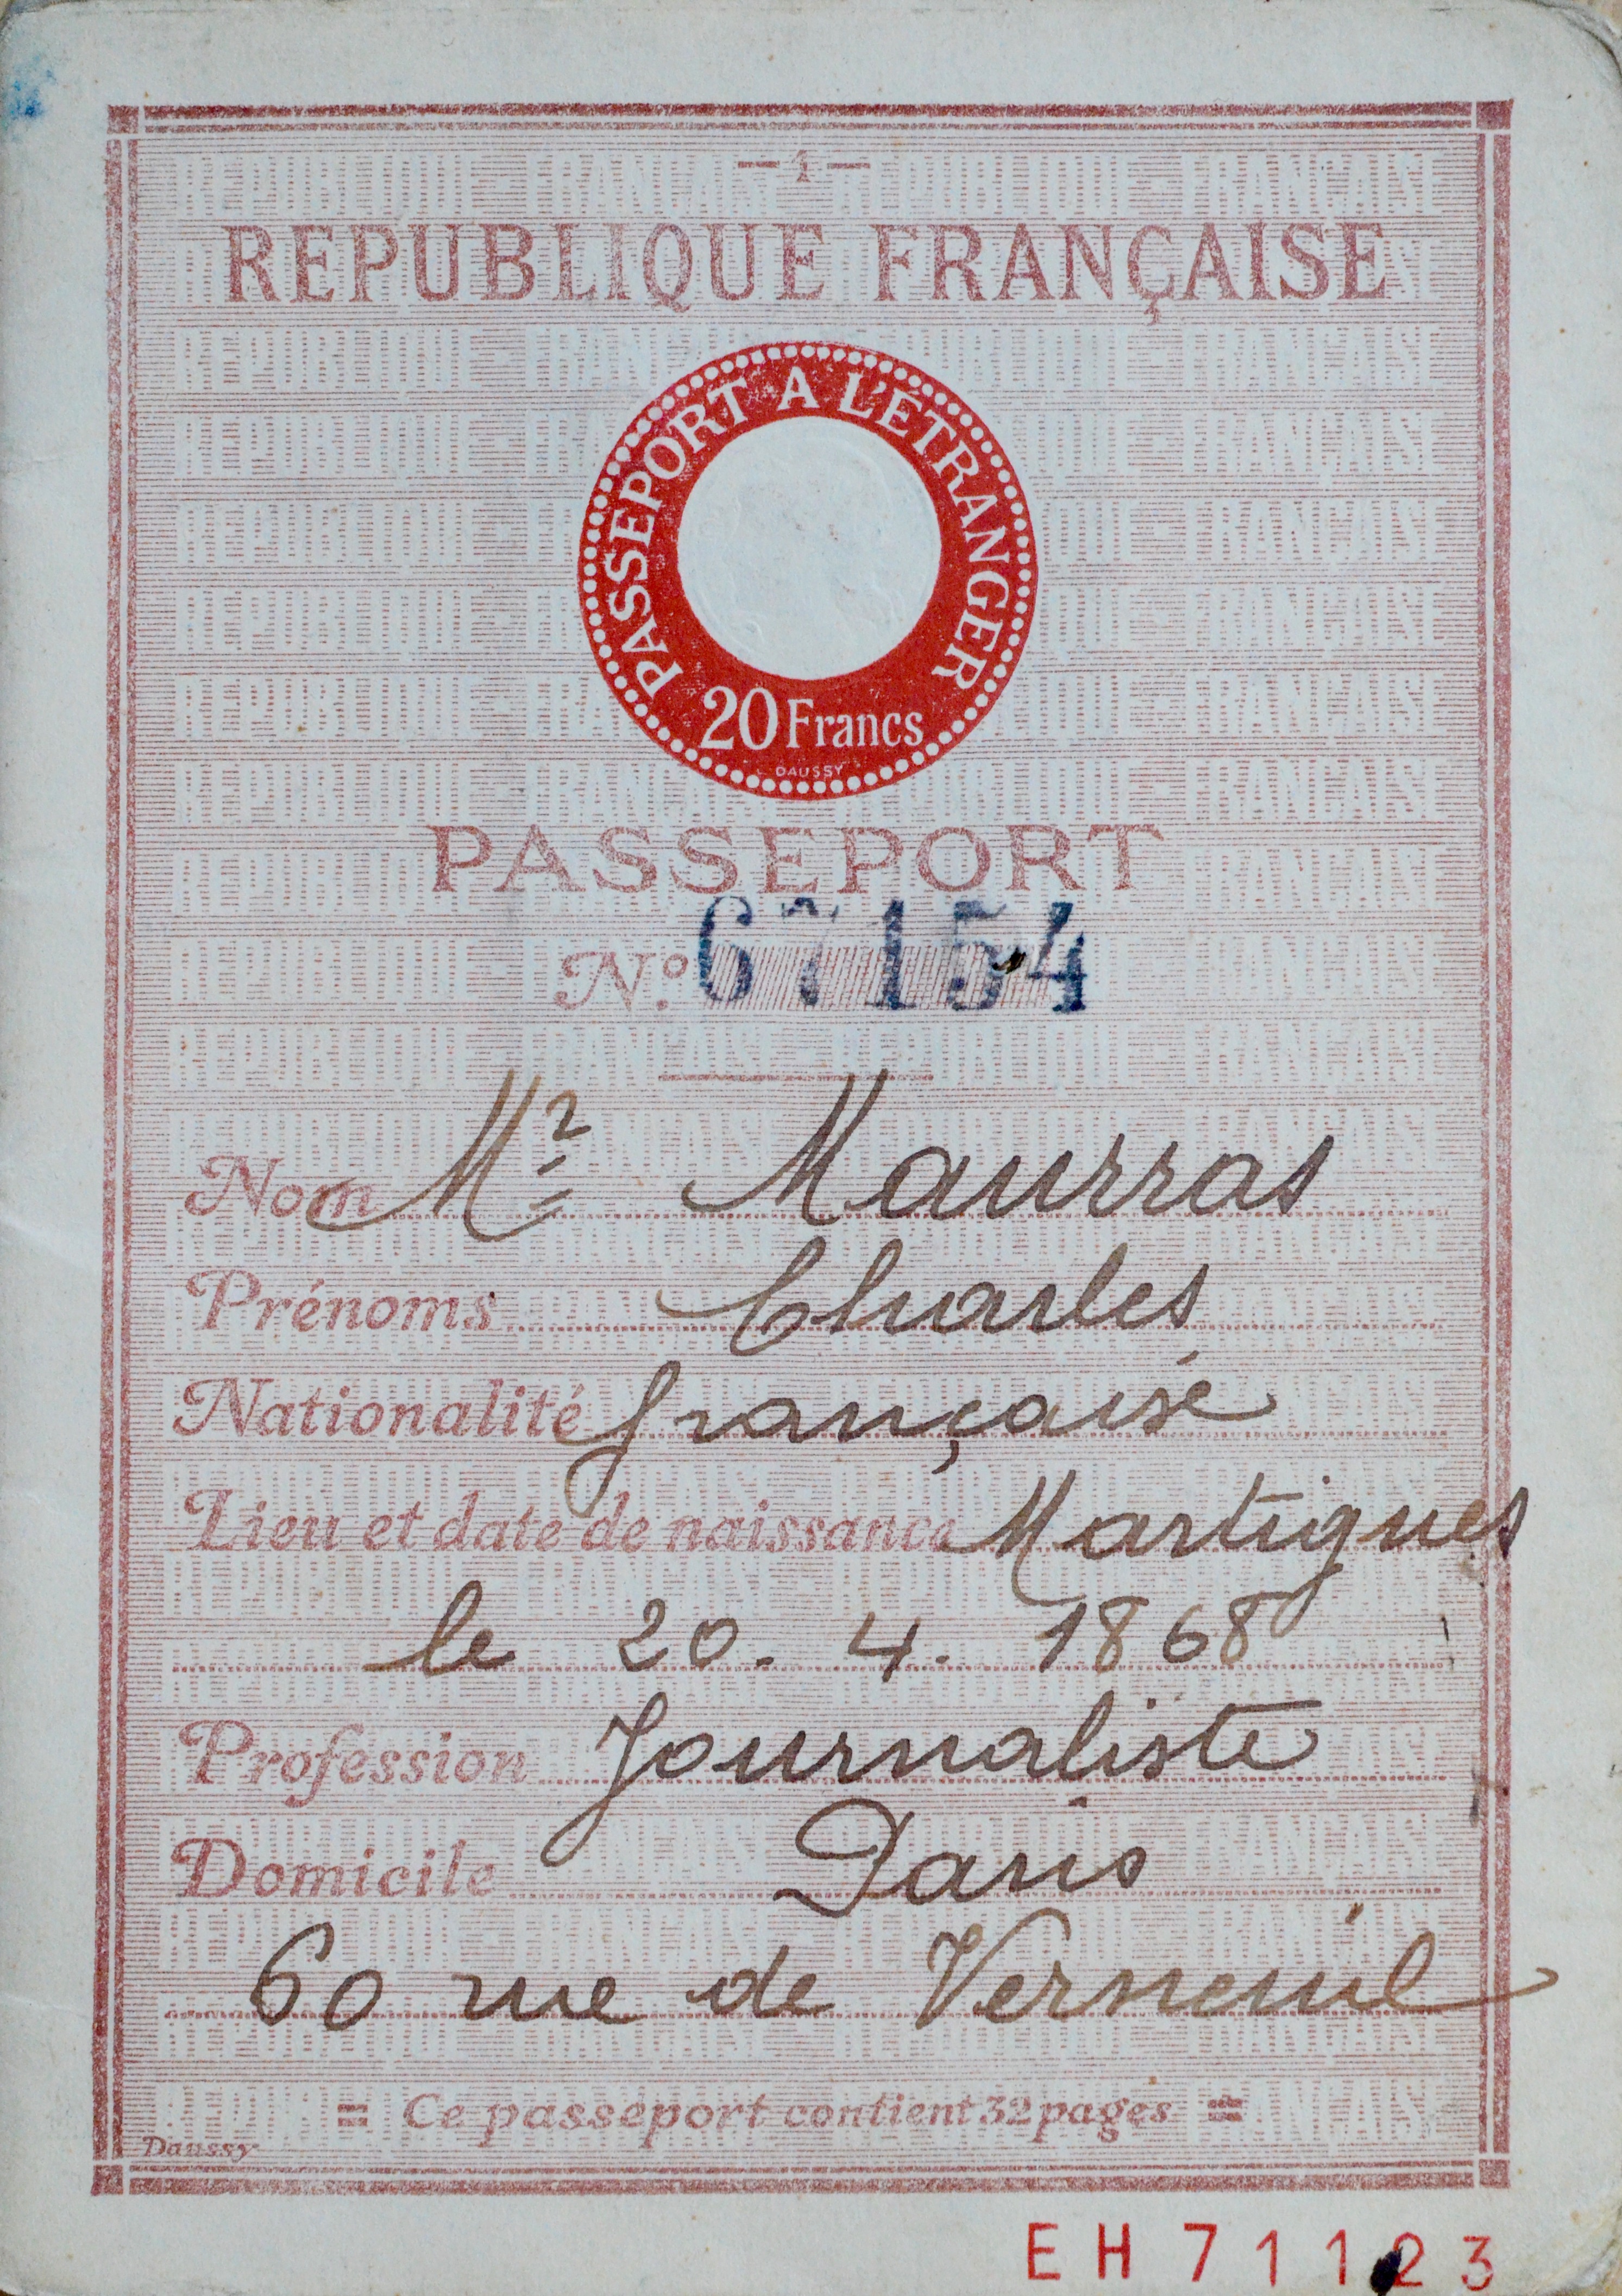 — 1 —
REPUBLIQUE FRANÇAISE
PASSEPORT A L'ÉTRANGER
20 Francs
DAUSSY
PASSEPORT
N° 67154
Nom Mr Maurras
Prénoms Charles
Nationalité française
Lieu et date de naissance Martigues
le 20. 4. 1868
Profession Journaliste
Domicile Paris
60 rue de Verneuil
= Ce passeport contient 32 pages =
Daussy
EH 71123